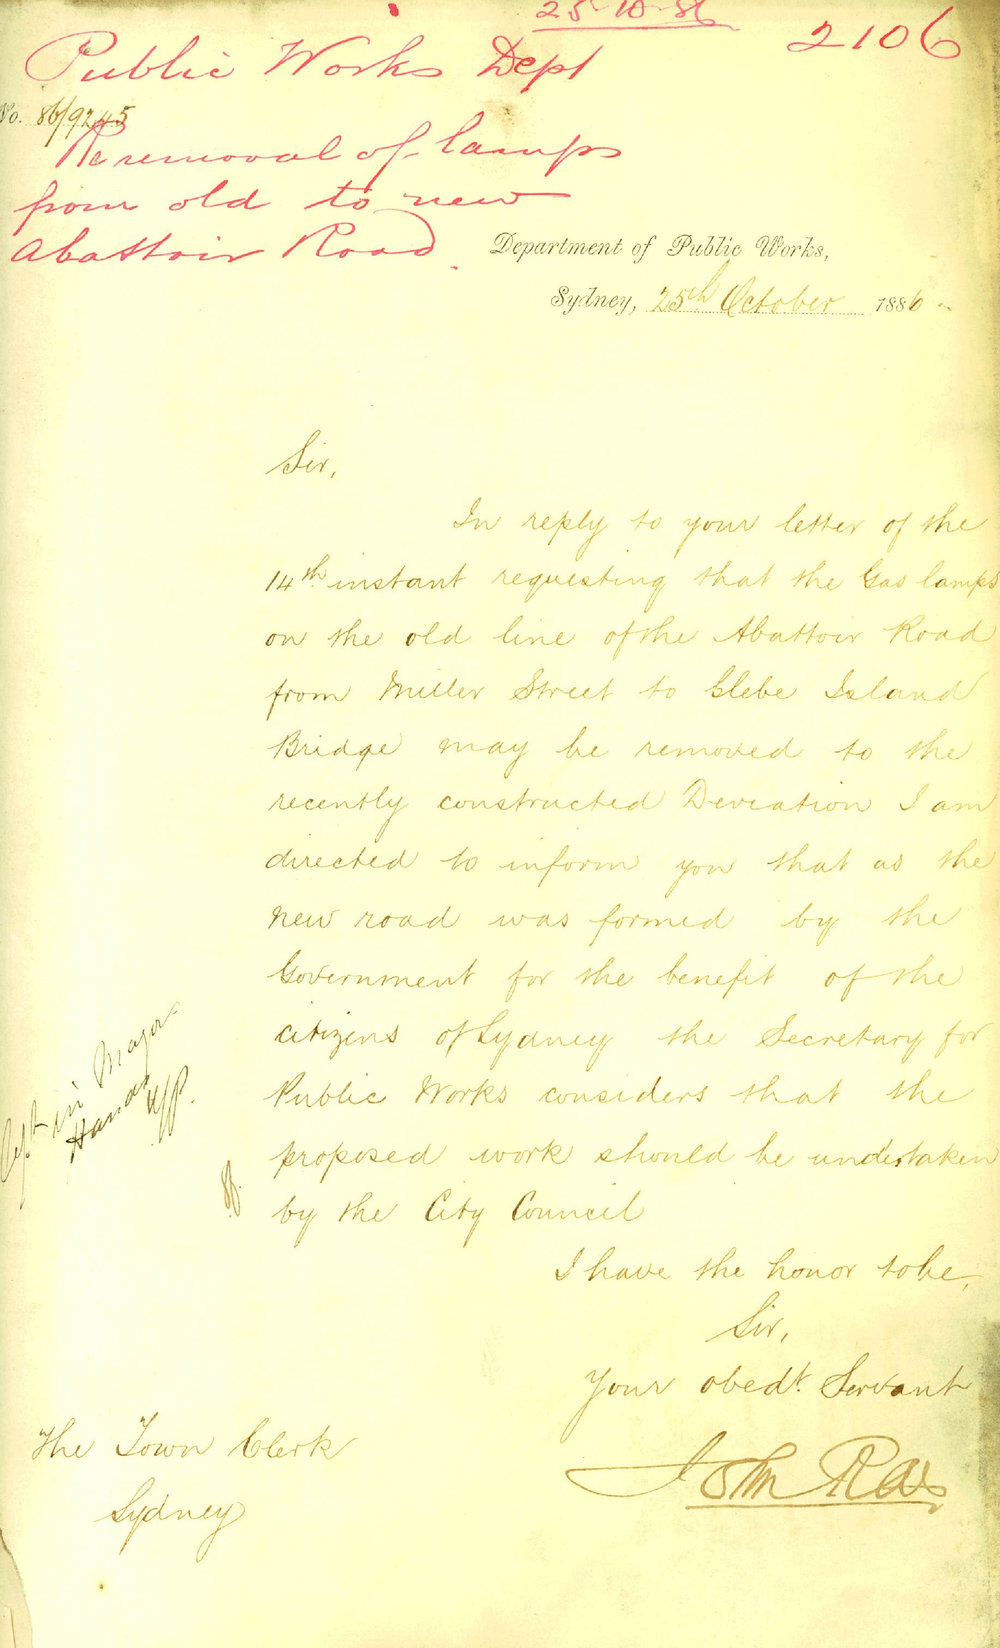 25-10-86
2106
Public Works Dept
No. 86/9245
Re removal of lamps
from old to new
Abattoir Road.
Department of Public Works,
Sydney, 25th October 1886
Sir,
In reply to your letter of the
14th instant requesting that the Gas lamps
on the old line of the Abattoir Road
from Miller Street to Glebe Island
Bridge may be removed to the
recently constructed Deviation I am
directed to inform you that as the
new road was formed by the
Government for the benefit of the
citizens of Sydney the Secretary for
Public Works considers that the
proposed work should be undertaken
by the City Council
I have the honor to be,
Sir,
Your obedt. Servant
John Rae
The Town Clerk
Sydney
Mayor